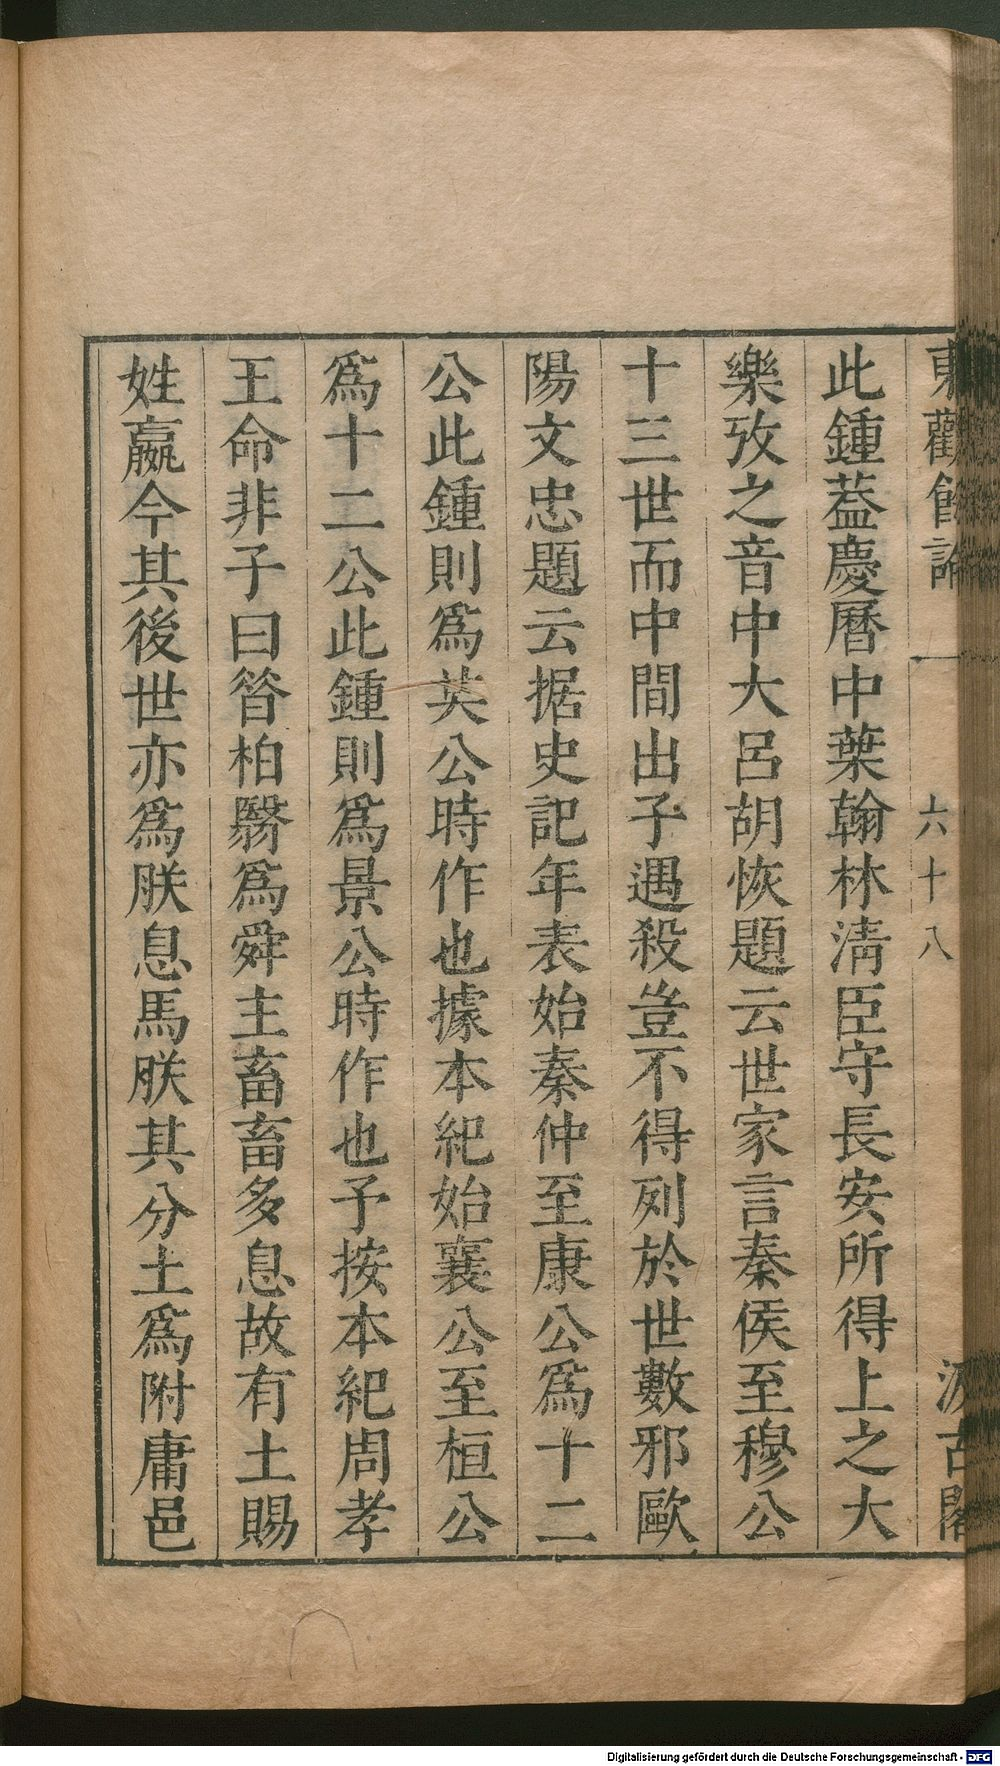 東觀餘論 一 六十八 汲古閣
此鍾葢慶曆中葉翰林淸臣守長安所得上之大
樂攷之音中大呂胡恢題云世家言秦侯至穆公
十三世而中間出子遇殺豈不得列於世數邪歐
陽文忠題云据史記年表始秦仲至康公爲十二
公此鍾則爲共公時作也據本紀始襄公至桓公
爲十二公此鍾則爲景公時作也予按本紀周孝
王命非子曰昝柏翳爲舜主畜畜多息故有土賜
姓嬴今其後世亦爲朕息馬朕其分土爲附庸邑
Digitalisierung gefördert durch die Deutsche Forschungsgemeinschaft - DFG